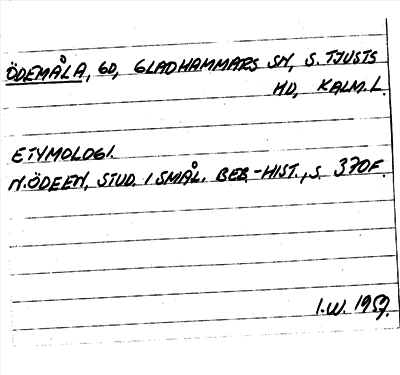 ÖDEMÅLA, GD, GLADHAMMARS SN, S. TJUSTS
HD, KALM. L.
ETYMOLOGI.
N. ÖDEEN, STUD. I SMÅL. BEB.-HIST., S. 370F.
I.W. 1959.